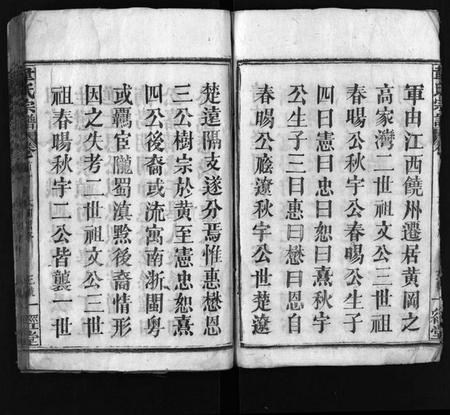 軍由江西饒州遷居黃岡之
高家灣二世祖文公三世祖
春暘公秋宇公春暘公生子
四曰憲曰忠曰恕曰熹秋宇
公生子三曰惠曰懋曰恩自
春暘公秋宇公世楚遼
楚遠隔支遂分焉惟惠懋恩
三公樹宗於黃至憲忠恕熹
四公後裔或流寓南浙閩粵
或羈宦隴蜀滇黔後裔情形
因之失考二世祖文公三世
祖春暘秋宇二公皆襲一世
氏宗譜